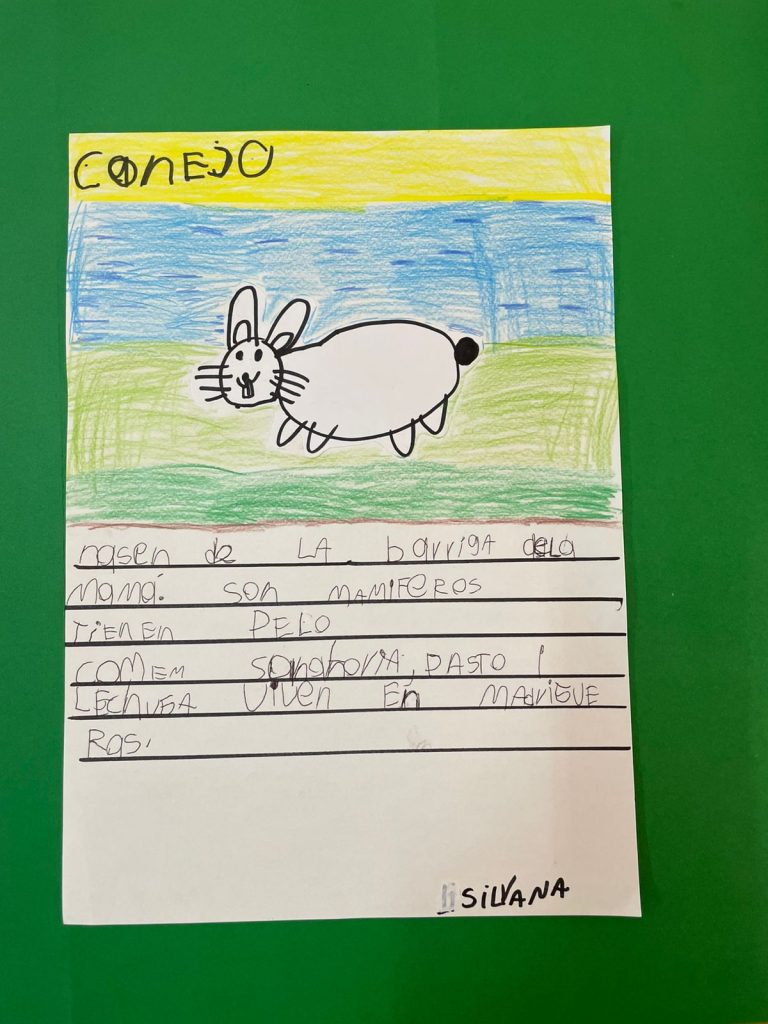 CONEJO
nasen de LA barriga dela
mamá. son mAMIFeROS
TIENEN PELO
COMEM sanahoria, PASTO I
LECHUGA viven En MAdrigUE
Ras.
SiLVANA